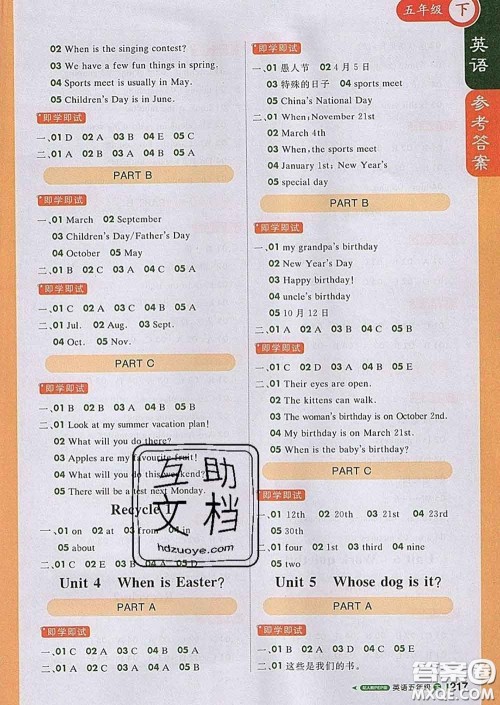 五年级 下
英语
参考答案
02 When is the singing contest?
03 We have a few fun things in spring.
04 Sports meet is usually in May.
05 Children's Day is in June.
即学即试
一、01 D 02 A 03 B 04 E 05 C
二、01 A 02 A 03 B 04 A 05 C
PART B
即学即试
一、01 March 02 September
03 Children's Day/Father's Day
04 October 05 May
二、01 B 02 C 03 A 04 B 05 A
即学即试
一、01 C 02 A 03 C 04 A 05 A
二、01 Jul. 02 Aug. 03 Sept.
04 Oct. 05 Nov.
PART C
即学即试
一、01 B 02 C 03 A 04 C 05 A
二、01 Look at my summer vacation plan!
02 What will you do there?
03 Apples are my favourite fruit!
04 What will you do this weekend?
05 There will be a test next Monday.
Recycle 1
一、01 on 02 at 03 from 04 in
05 about
二、01 C 02 D 03 B 04 E 05 A
Unit 4 When is Easter?
PART A
即学即试
一、01 B 02 A 03 B 04 A 05 C
二、01 D 02 C 03 A 04 B 05 E
即学即试
一、01 愚人节 02 4月5日
03 特殊的日子 04 sports meet
05 China's National Day
二、01 When; November 21st
02 March 4th
03 When, the sports meet
04 January 1st; New Year's
05 special day
PART B
即学即试
一、01 my grandpa's birthday
02 New Year's Day
03 Happy birthday!
04 uncle's birthday
05 10月12日
二、01 A 02 D 03 C 04 B 05 E
即学即试
一、01 A 02 B 03 A 04 B 05 B
二、01 Their eyes are open.
02 The kittens can walk.
03 The woman's birthday is on October 2nd.
04 My birthday is on March 3rd.
05 When is the baby's birthday?
PART C
即学即试
一、01 12th 02 20th 03 21st 04 23rd
05 30th
二、01 four 02 first 03 two 04 third
05 nine
三、01 A 02 B 03 A 04 B 05 B
Unit 5 Whose dog is it?
PART A
即学即试
一、01 A 02 D 03 B 04 C 05 E
二、01 这些是我们的书。
互助
文档
hdzuoye.com
英语五年级
答案圈